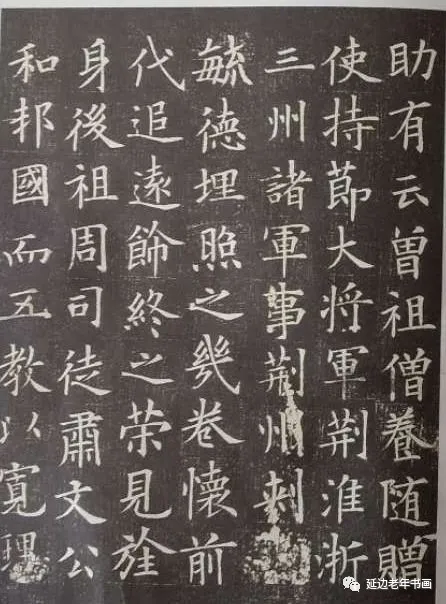 助有云曾祖僧養随贈
使持莭大将軍荆淮淅
三州諸軍事荆州刺
毓德埋照之幾卷懷前
代追遠飾終之荣見旌
身後祖周司徒肅文公
和邦國而五教以寬理
延边老年书画